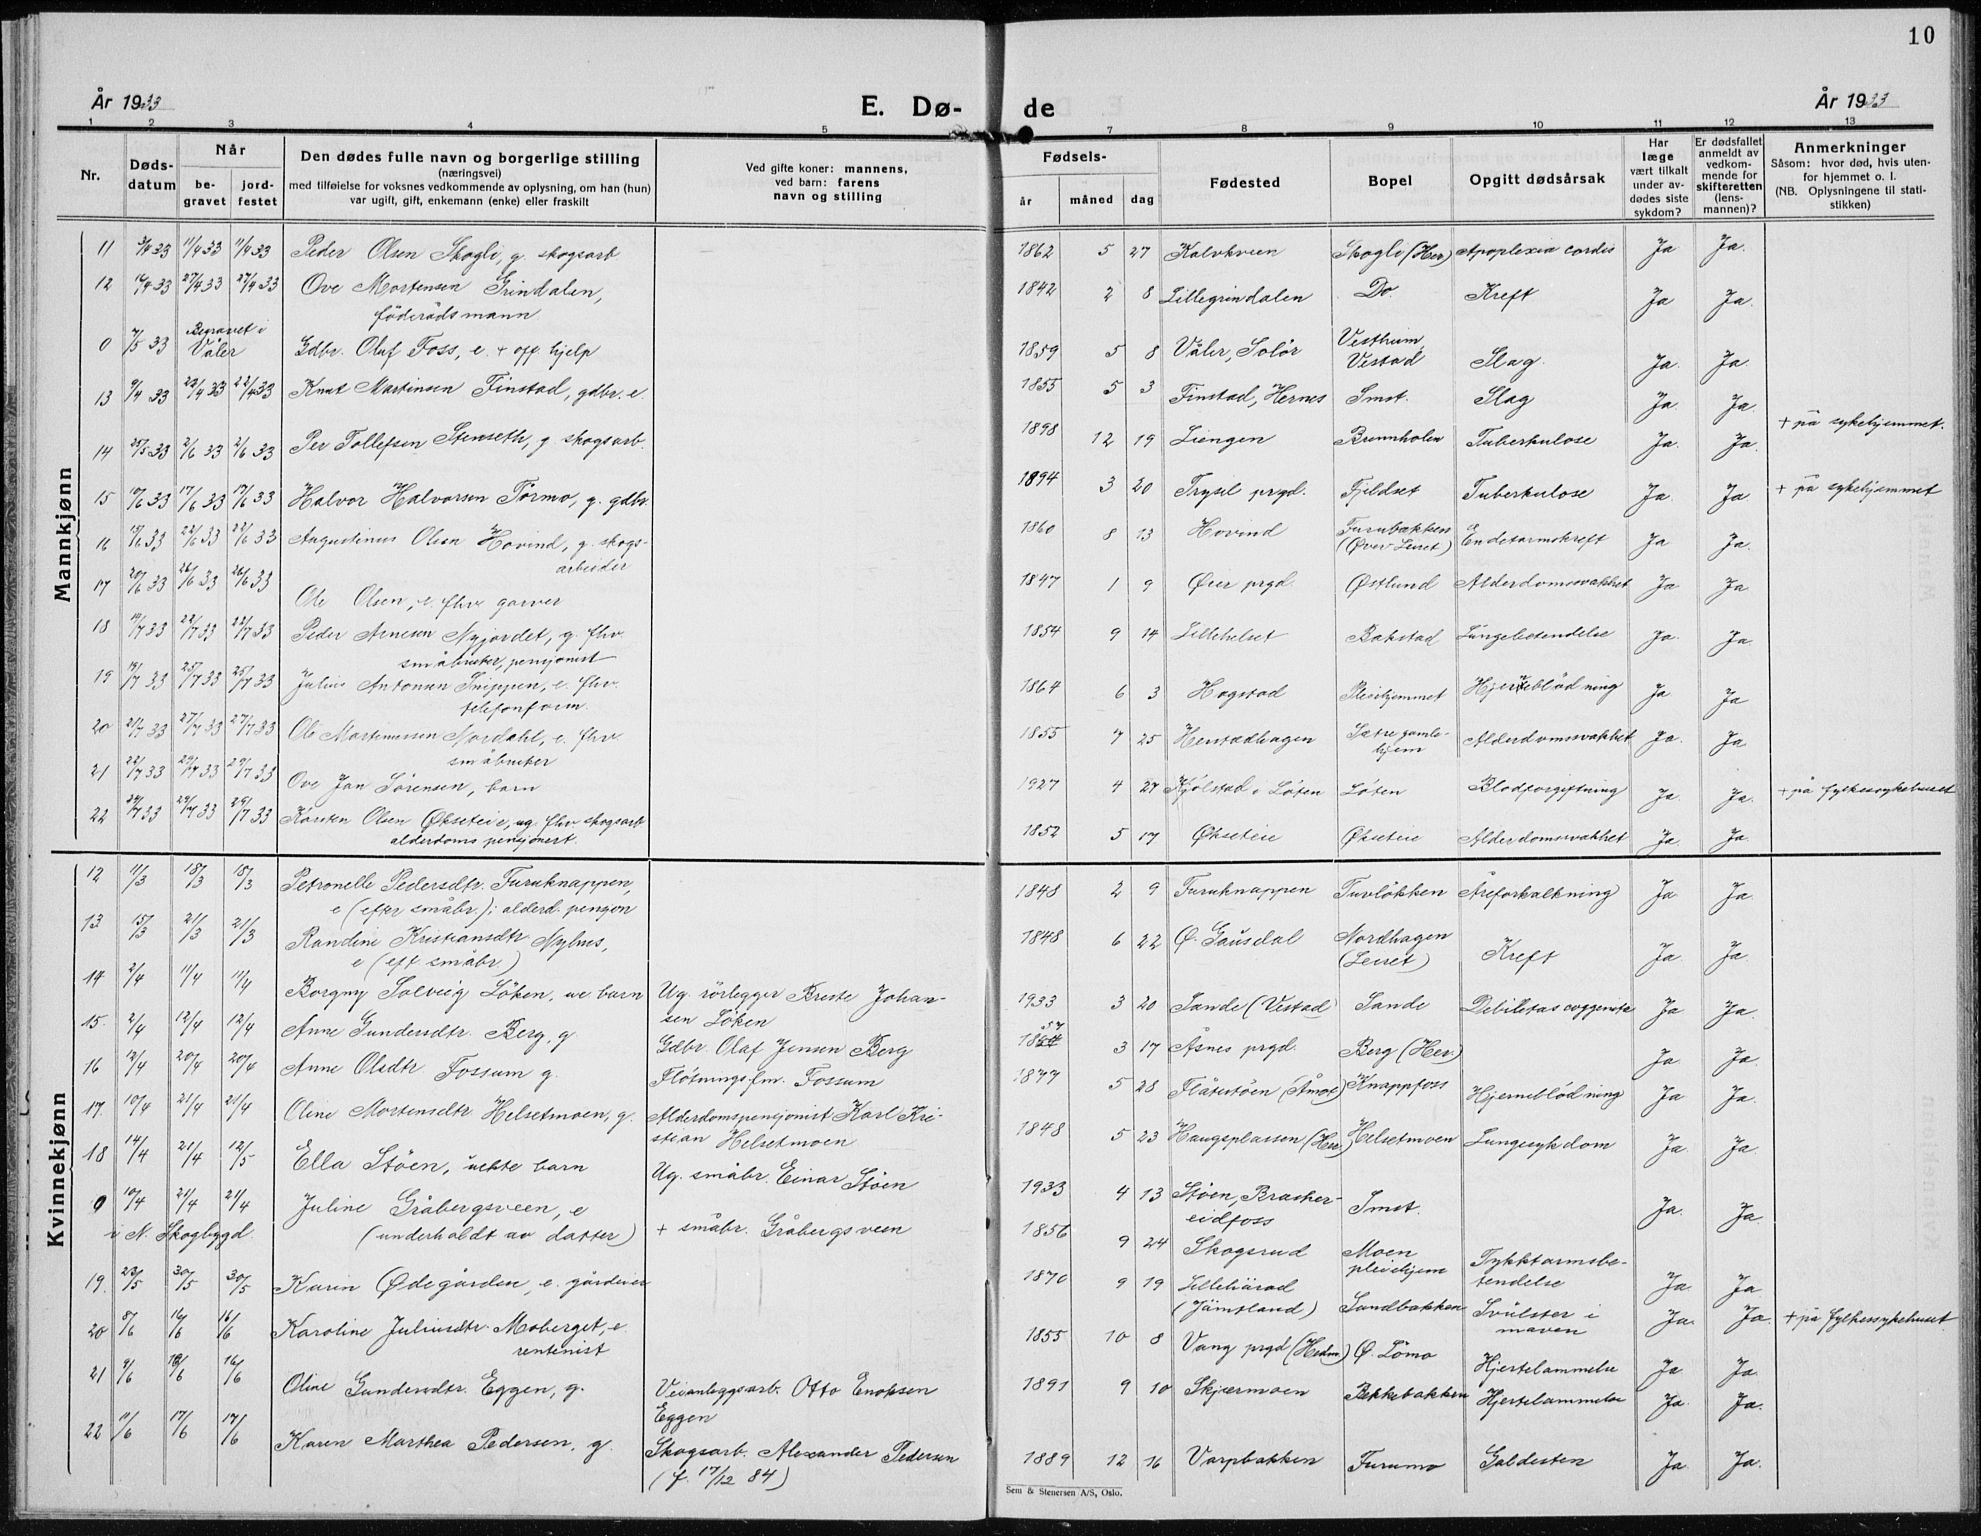 10
År 1933
E. Dø-
de
År 1933
1 2 3 4 5 7 8 9 10 11 12 13
Nr.
Døds-
datum
Når
be-
gravet
jord-
festet
Den dødes fulle navn og borgerlige stilling
(næringsvei)
med tilføielse for voksnes vedkommende av oplysning, om han (hun)
var ugift, gift, enkemann (enke) eller fraskilt
Ved gifte koner: mannens,
ved barn: farens
navn og stilling
Fødsels-
år måned dag
Fødested
Bopel
Opgitt dødsårsak
Har
læge
vært tilkalt
under av-
dødes siste
sykdom?
Er dødsfallet
anmeldt av
vedkom-
mende for
skifteretten
(lens-
mannen)?
Anmerkninger
Såsom: hvor død, hvis uten-
for hjemmet o. l.
(NB. Oplysningene til stati-
stikken)
Mannkjønn
11 3/4 33 11/4 33 11/4 33 Peder Olsen Skogli, g. skogsarb 1862 5 27 Kalvkveen Skogli (Her) Apoplexia cordis Ja Ja.
12 14/4 33 27/4 33 27/4 33 Ove Mortensen Grindalen, 1842 2 8 Lillegrindalen Do. Kreft Ja Ja.
föderådsmann
0 7/5 33 Begravet i
Våler Gdbr. Oluf Foss, e. + off. hjelp 1859 5 8 Våler, Solör Vestheim, Vestad Slag. Ja. Ja.
13 9/4 33 22/4 33 22/4 33 Knut Martinsen Finstad, gdbr. e. 1855 5 3 Finstad, Hernes Smst. Slag Ja. Ja.
14 25/5 33 2/6 33 2/6 33 Per Tollefsen Stenseth, g. skogsarb. 1898 12 19 Liengen Brennholen Tuberkulose Ja. Ja. + på sykehjemmet.
15 10/6 33 17/6 33 17/6 33 Halvor Halvorsen Tørmo, g. gdbr. 1894 3 20 Trysil prgd. Fjeldset Tuberkulose Ja. Ja + på sykehjemmet
16 15/6 33 22/6 33 22/6 33 Augustinus Olsen Hovind, g. skogs- 1860 8 13 Hovind Furubakken
arbeider (Øver Leiret) Endetarmskreft Ja Ja.
17 20/6 33 26/6 33 26/6 33 Ole Olsen, e. fhv garver 1847 1 9 Øier prgd. Østlund Alderdomssvakhet Ja Ja
18 14/7 33 22/7 33 22/7 33 Peder Arnesen Nyjordet, g. fhv. 1854 9 14 Lillehelset Bakstad Lungebetendelse Ja. Ja.
småbruker, pensjonist
19 19/7 33 25/7 33 25/7 33 Julius Antonsen Snippen, e. fhv. 1864 6 3 Hogstad Pleiehjemmet Hjerneblødning Ja Ja.
telefonform.
20 21/7 33 27/7 33 27/7 33 Ole Martinussen Nordahl, e. fhv. 1855 7 25 Henstadhagen Sætre gamle-
hjem Alderdomssvakhet Ja. Ja
småbruker
21 22/7 33 29/7 33 29/7 33 Ove Jan Sörensen, barn 1927 4 27 Kjölstad i Löten Löten Blodforgiftning Ja Ja. + på fylkessykehuset
22 24/7 33 29/7 33 29/7 33 Karsten Olsen Økseteie, ug. fhv skogsarb 1852 5 17 Økseteie Økseteie Alderdomssvakhet Ja. Ja.
alderdoms pensjonert.
Kvinnekjønn
12 11/3 18/3 18/3 Petronelle Pedersdtr. Furuknappen, 1848 2 9 Furuknappen Tuvløkken Åreforkalkning Ja Ja
e (efter småbr.); alderd. pensjon
13 15/3 21/3 21/3 Randine Kristiansdtr Nyhus, 1848 6 22 Ø. Gausdal Nordhagen
(Leiret) Kreft Ja. Ja.
e (eft småbr.)
14 2/4 11/4 11/4 Borgny Solveig Löken, ue barn Ug. rörlegger Breste Johan-
sen Löken 1933 3 20 Sande (Vestad) Sande Debilitas congenita Ja Ja.
15. 2/4 12/4 12/4 Anne Gundersdtr. Berg, g Gdbr. Olaf Jensen Berg 57 3 17 Åsnes prgd. Berg (Her.) Ja Ja.
16 12/4 20/4 20/4 Anne Olsdtr Fossum g. Flötningsfm. Fossum 1877 5 28 Flåtestöen (Åmot) Knappfoss Hjerneblödning Ja Ja.
17. 10/4 21/4 21/4 Oline Mortensdtr Helsetmoen, g. Alderdomspensjonist Karl Kri-
stian Helsetmoen 1848 5 23 Haugsplassen (Her.) Helsetmoen Lungesykdom Ja Ja.
18 14/4 21/4 12/5 Ella Stöen, uekte barn Ug. småbr. Einar Stöen 1933 4 13 Stöen, Brasker-
eidfoss Smst. Ja. Ja.
0 10/4 21/4 21/4 Juline Gråbergsveen, e + småbr. Gråbergsveen 1856 9 24 Skogsrud Moen
pleiehjem Tykktarmsbe-
tendelse Ja. Ja
i N. Skogbygd. (underholdt av datter)
19. 23/5 30/5 30/5 Karen Ødegården, e. gårdeier 1870 9 19 Lillehärad
(Jämtland) Sundbakken Svulster i
maven Ja. Ja. + på fylkessykehuset
20 8/6 16/6 16/6 Karoline Juliusdtr. Moberget, e. 1855 10 8 Vang prgd (Hedm.) Ø. Lömo Hjertelammelse Ja Ja.
rentenist
21 9/6 16/6 16/6 Oline Gundersdtr. Eggen, g. Veianleggsarb. Otto Enoksen
Eggen 1891 9 10 Skjærmoen Bekkebakken Hjertelammelse Ja. Ja.
22 11/6 17/6 17/6 Karen Marthea Pedersen, g. Skogsarb. Alexander Pedersen
(f. 17/12 84) 1889 12 16 Varpbakken Furumo Galdesten Ja. Ja.
Sem & Stenersen A/S, Oslo.